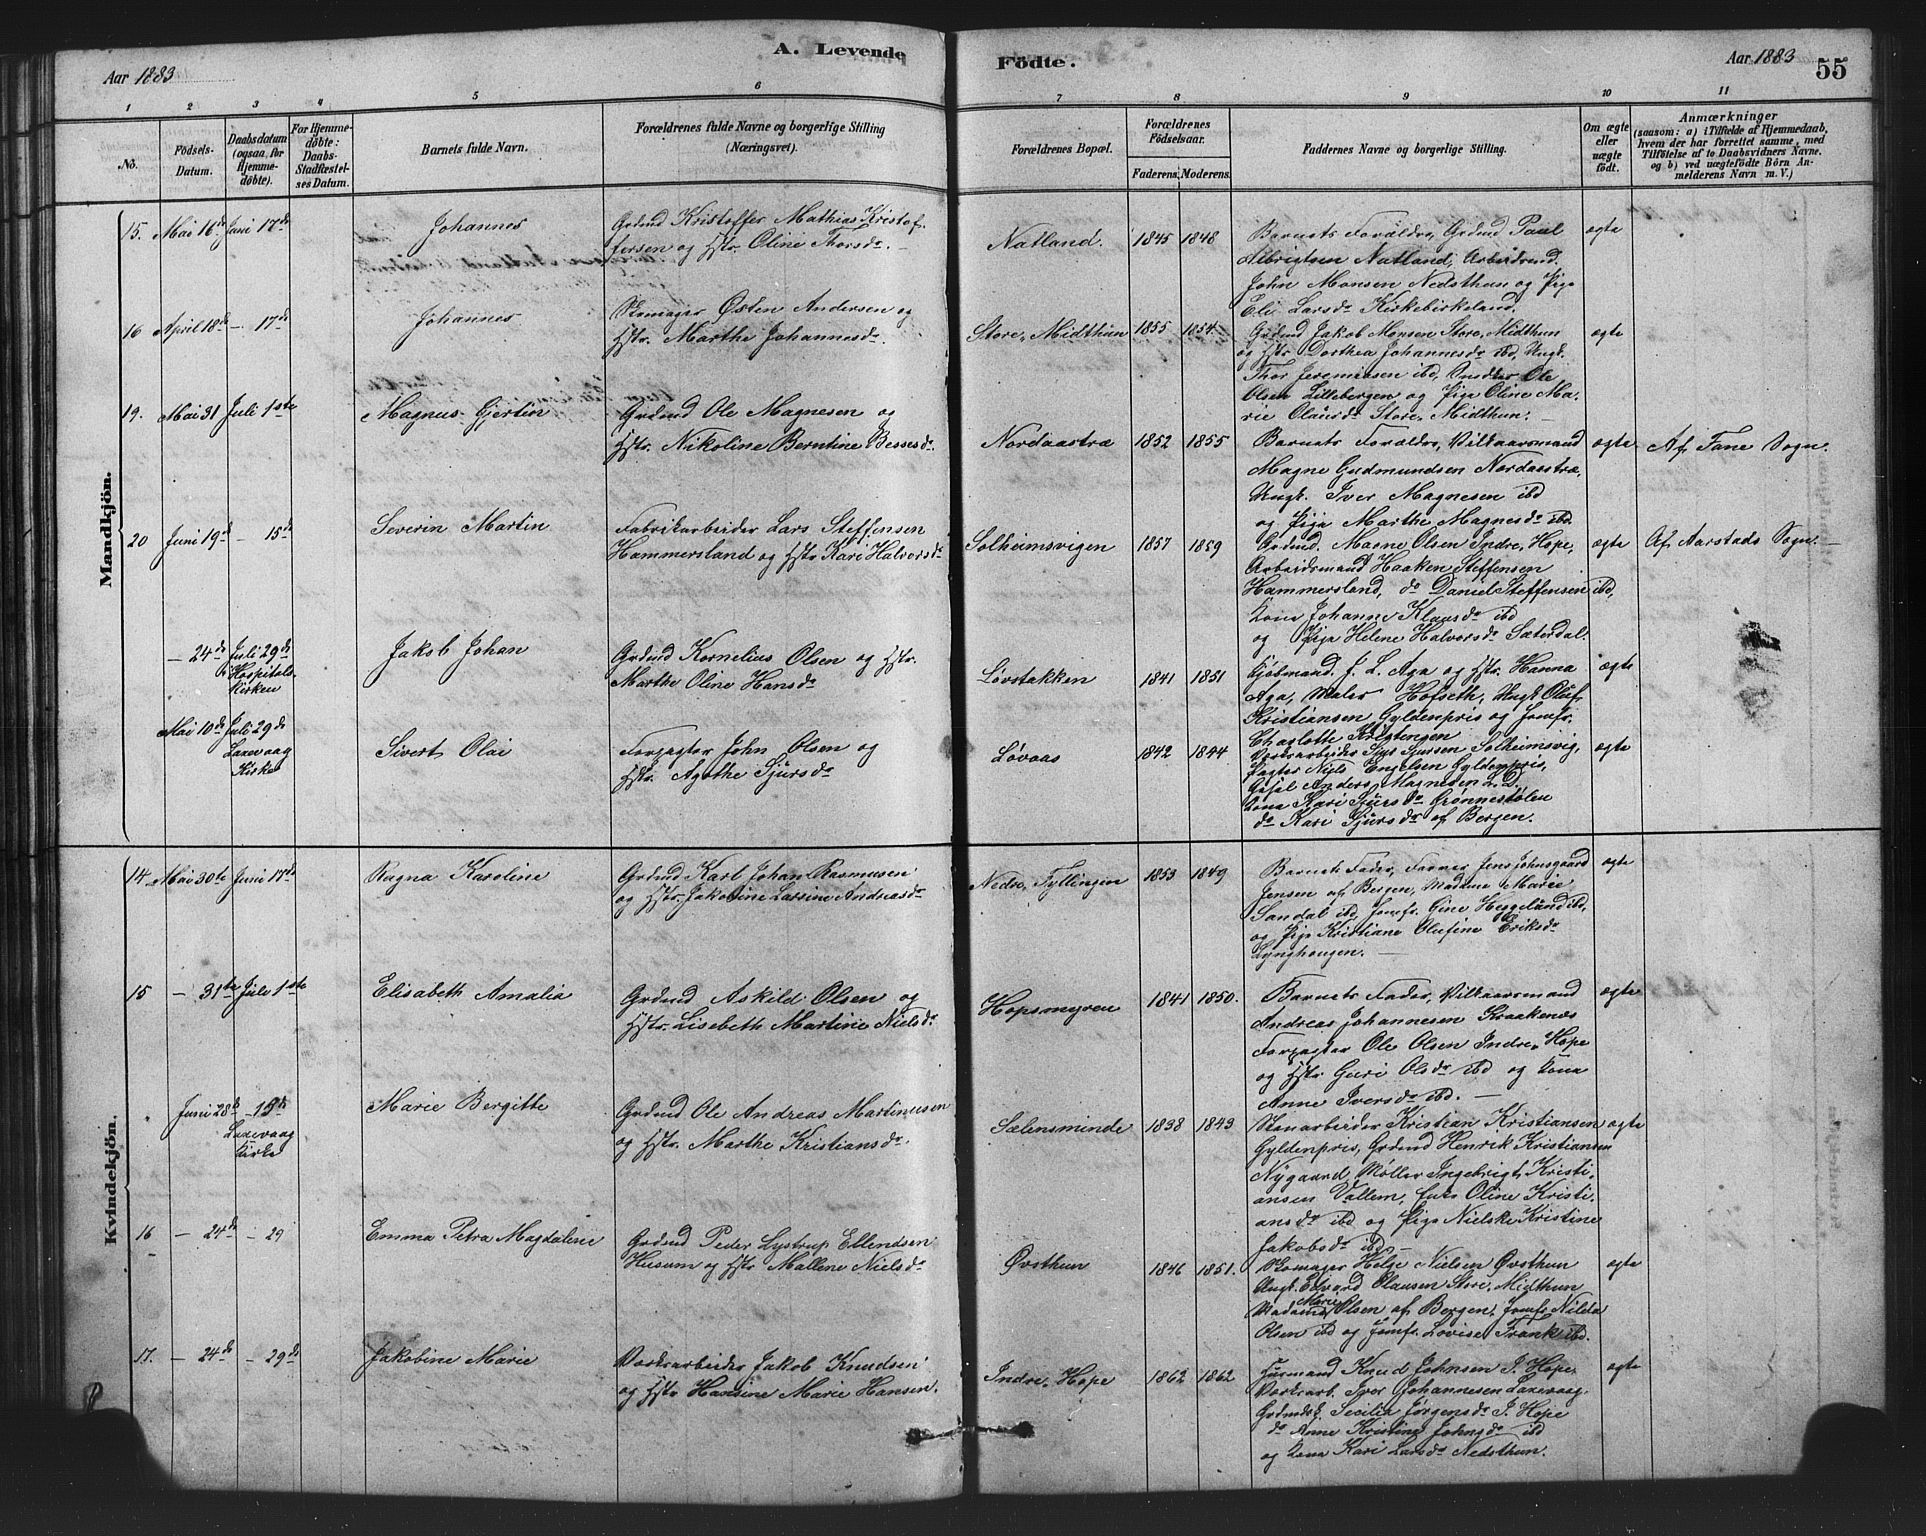 A. Levende Fødte.
Aar 1883
Aar 1883
55
1 2 3 4 5 6 7 8 9 10 11
No.
Fødsels-Datum.
Daabsdatum (ogsaa for Hjemme-døbte).
For Hjemme-døbte: Daabs-Stadfæstel-ses Datum.
Barnets fulde Navn.
Forældrenes fulde Navne og borgerlige Stilling (Næringsvei).
Forældrenes Bopæl.
Forældrenes Fødselsaar.
Faderens. Moderens.
Faddernes Navne og borgerlige Stilling.
Om ægte eller uægte født.
Anmærkninger
(saasom: a) i Tilfælde af Hjemmedaab, hvem der har forrettet samme, med Tilføielse af to Daabsvidners Navne, og b) ved uægtefødte Børn Anmelderens Navn m. V.)
Mandkjön.
15. Mai 16de Juni 17de Johannes
Grdmd Kristoffer Mathias Kristof-
fersen og Hstr. Oline Thorsdr.
Natland. 1845 1848
Barnets Forældre, Grdmd Paul
Albrigtsen Natland, Arbeidsmd.
John Monsen Nedsthun og Pige
Eli Larsdr Kirkebirkeland.
ægte
16 April 18de — 17de Johannes
Skomager Østen Andersen og
Hstr. Marthe Johannesdr.
Store, Midthun 1855 1854
Grdmd Jakob Monsen Store, Midthun
og Hstr Dorthea Johannesdr ibd, Ungk.
Thor Jeremiasen ibd, Snedker Ole
Olsen Lillebergen og Pige Oline Ma-
rie Olausdr Store, Midthun. —
ægte
19. Mai 31 Juli 1ste Magnus Gjertin
Grdmd Ole Magnesen og
Hstr. Nikoline Berntine Bessesdr.
Nordaastræ 1852 1855
Barnets Forældre, Vilkaarsmand
Magne Gudmundsen Nordaastræ,
Ungk. Iver Magnesen ibd
og Pige Marthe Magnesdr ibd.
ægte
Af Fane Sogn.
20 Juni 19de — 15de Severin Martin
Fabrikarbeider Lars Steffensen
Hammersland og Hstr Kari Halvorsdr
Solheimsvigen 1857 1859
Grdmd. Magne Olsen Indre, Hope,
Arbeidsmand Haaken Steffensen
Hammersland, do Daniel Steffensen ibd,
Kone Johanne Klausdr ibd
og Pige Helene Halvorsdr Sæterdal.
ægte
Af Aarstads Sogn. —
— 24de Juli 29de Hospitals-
kirken
Jakob Johan
Grdmd Kornelius Olsen og Hstr.
Marthe Oline Hansdr
Løvstakken 1841 1851
Kjøbmand J. L. Aga og Hstr. Hanna
Aga, Maler Hofseth, Ungk Oluf
Kristiansen Gyldenpris og Jomfr.
Chaglotte Kristengen
ægte
Mai 10de Juli 29de
Laxevaag
Kirke
Sivert Olai
Forpagter John Olsen og
Hstr. Agathe Sjursdr
Løvaas 1842 1844
Værksarbeider Sjur Sjursen Solheimsvig,
Pagter Niels Engelsen Gyldenpris,
Gifte Anders Magnesen L.D.,
Kone Kari Sjursdr Grønnestølen
do Kari Sjursdr af Bergen.
ægte
Kvindekjön.
14. Mai 30te Juni 17de Ragna Karoline
Grdmd Karl Johan Rasmusen
og Hstr. Jakobine Larsine Andreasdr
Nedre, Fyllingen 1853 1849
Barnets Fader, Farver Jens Johnsgaard
Jensen af Bergen, Madame Marie
Sandal ibd, Jomfr. Gine Heggelund ibd,
og Pige Kristiane Olufine Eriksdr
Lynghaugen. —
ægte
15 — 31te Juli 1ste Elisabeth Amalia
Grdmd Askild Olsen og
Hstr. Lisebeth Martine Nielsdr
Hopsmyren 1841 1850.
Barnets Fader, Vilkaarsmand
Andreas Johannesen Kraakenæs
Forpagter Ole Olsen Indre, Hope
og Hstr Guri Olsdr ibd og Kone
Anne Iversdr ibd. —
ægte
Juni 28de — 15de
Laxevaag
Kirke
Marie Bergitte
Grdmd Ole Andreas Martinusen
og Hstr. Marthe Kristiansdr.
Sælensminde 1838 1843
Stenarbeider Kristian Kristiansen
Gyldenpris, Grdmd Henrik Kristiansen
Nygaard, Møller Ingebrigt Kristi-
ansen Vallem, Enke Oline Kristi-
ansdr ibd og Pige Nielske Kristine
Jakobsdr ibd —
ægte
16 — 24de — 29 Emma Petra Magdalene
Grdmd Peder Lystrup Ellendsen
Husum og Hstr Mallene Nielsdr
Øvsthun 1846 1851.
Skomager Helge Nielsen Øvsthun
Ungk. Edvard Olausen Store, Midthun
Madame Marie Olsen af Bergen, Jomfr. Nilda
Olsen ibd og Jomfr. Lovise Frank ibd.
ægte
17. — 24de — 29de Jakobine Marie
Værksarbeider Jakob Knudsen
og Hstr Hansine Marie Hansen.
Indre, Hope 1862 1862
Furmand Knud Johnsen I. Hope
Værksarb. Iver Johannesen Laxevaag.
Grdmdsk. Secilia Jørgensdr I. Hope
do Anne Kristine Johnsdr ibd
og Kone Kari Larsdr Nedsthun.
ægte